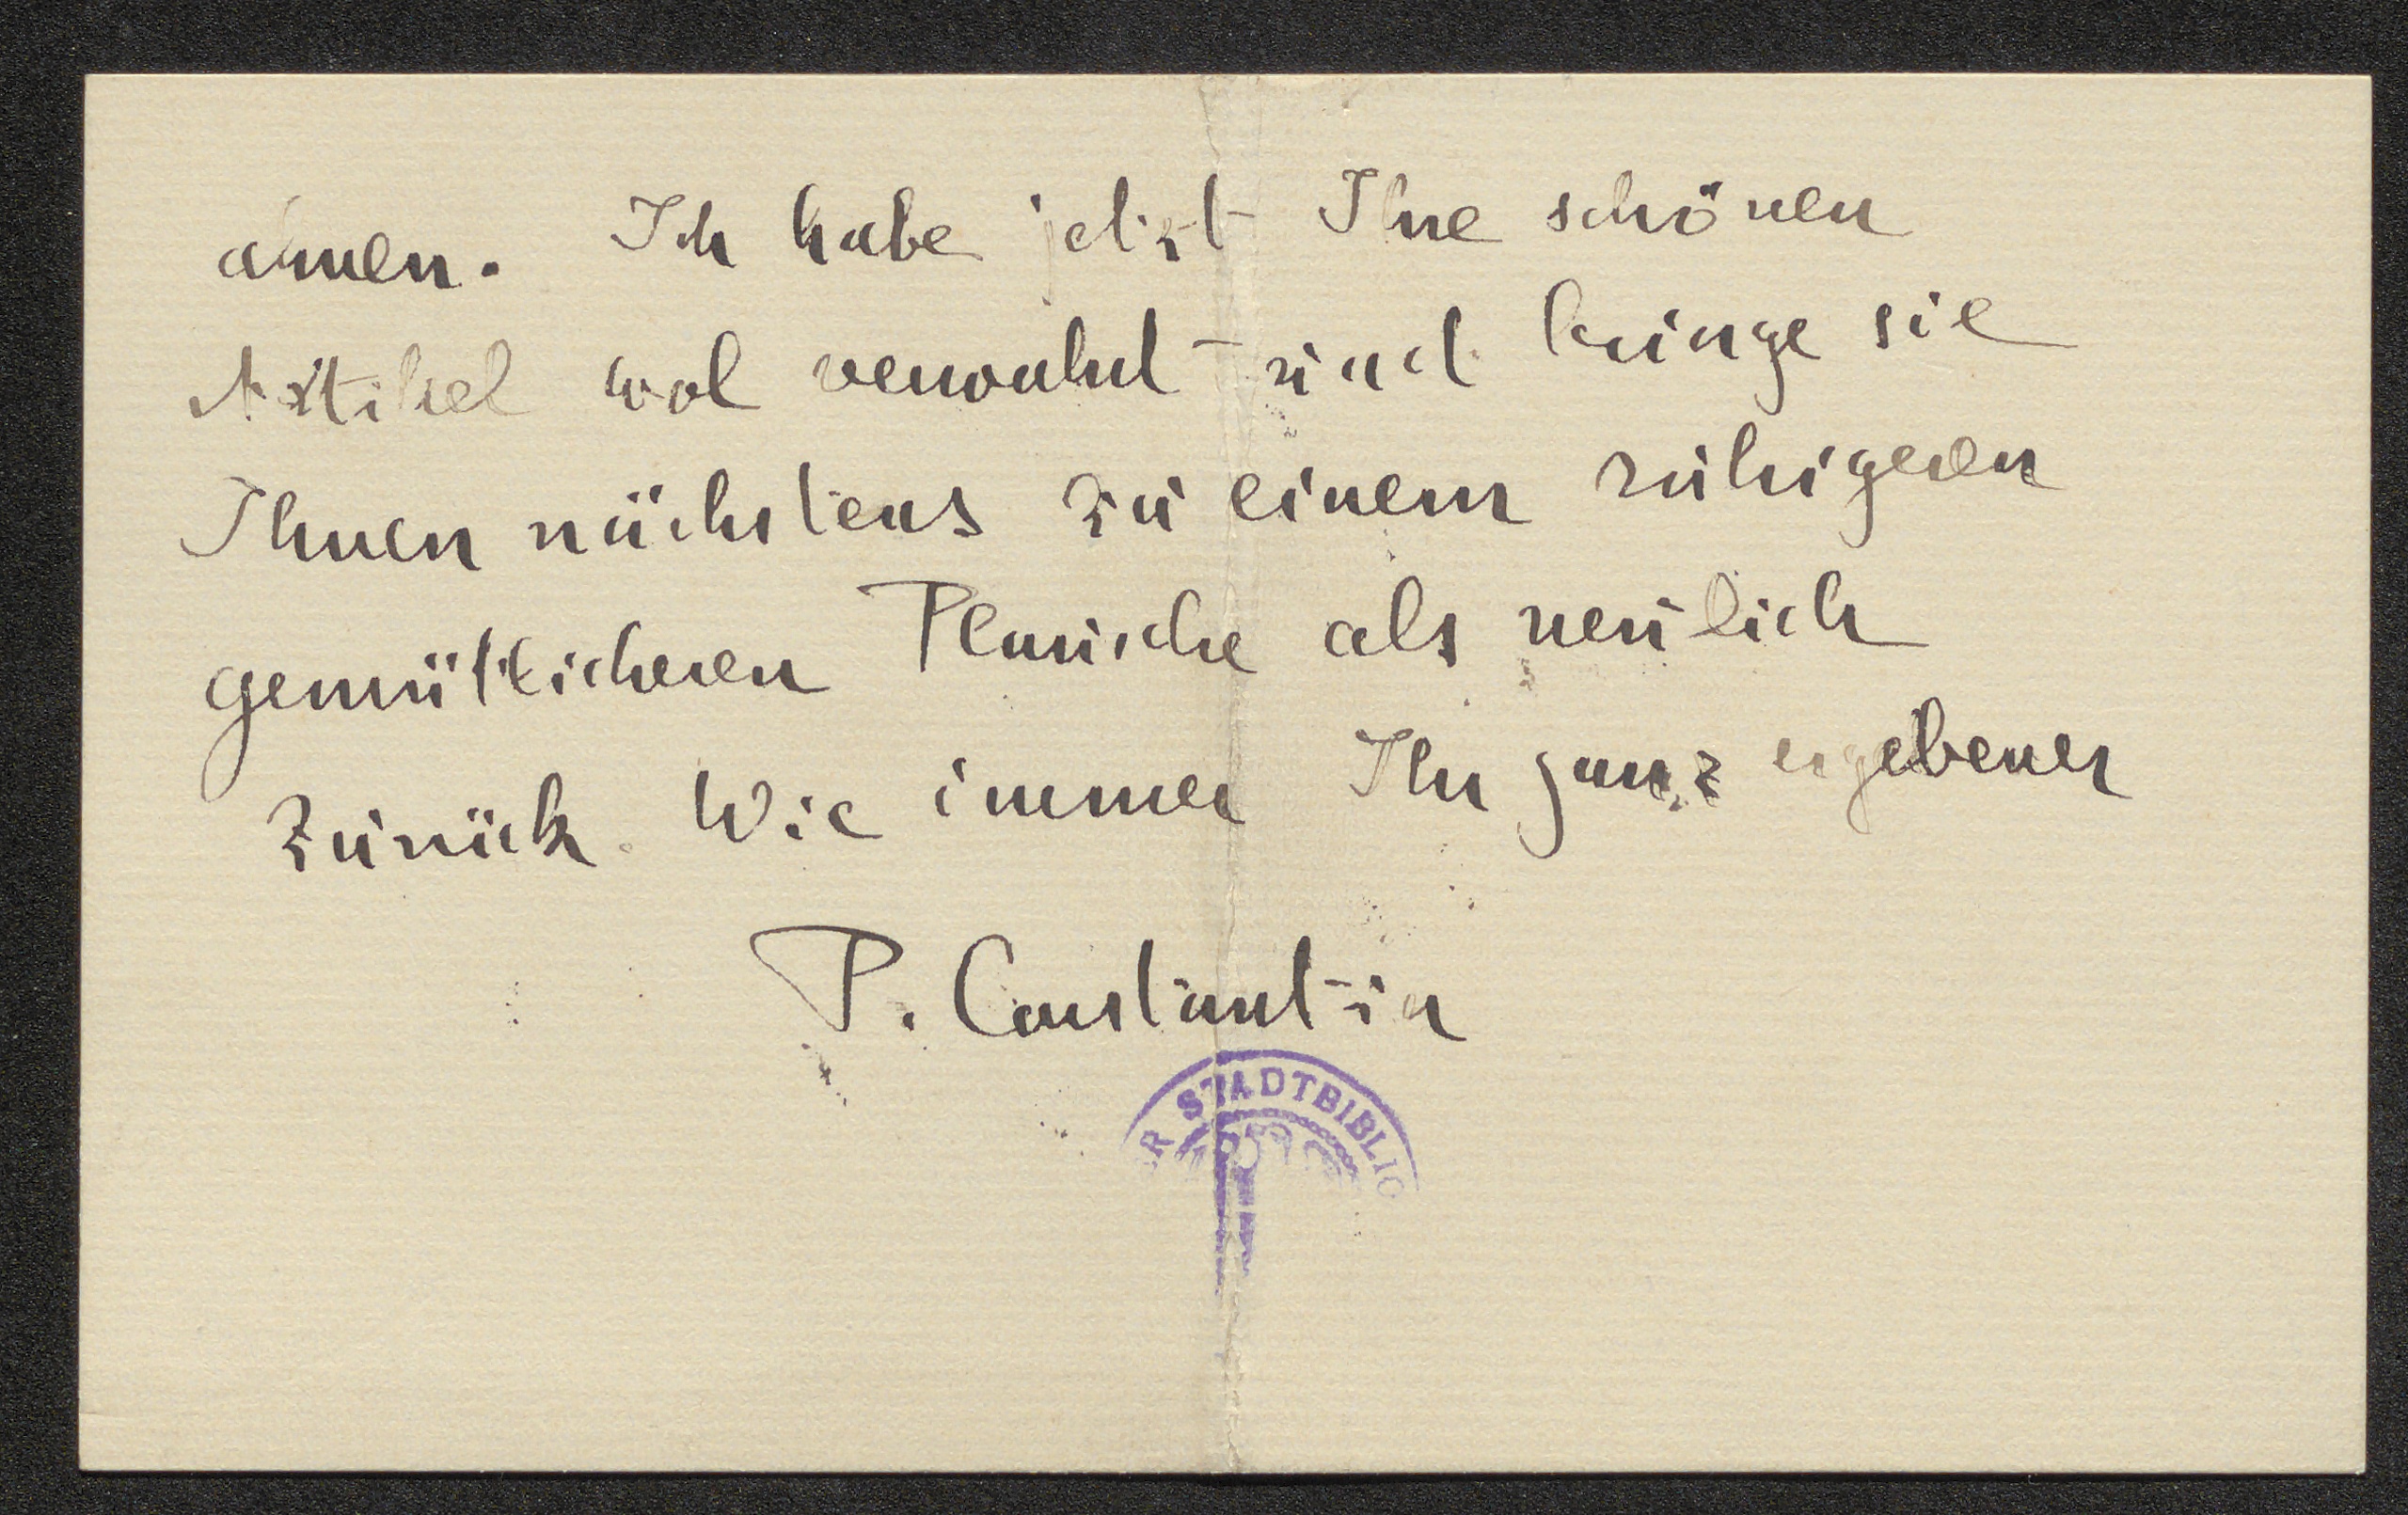 ahnen. Ich habe jetzt Ihre schönen
Artikel wol verwahrt und bringe sie
Ihnen nächstens zu einem ruhigeren
gemütlicheren Plausche als neulich
zurück. Wie immer Ihr ganz ergebener
P. Constantin
R STADTBIBLIO